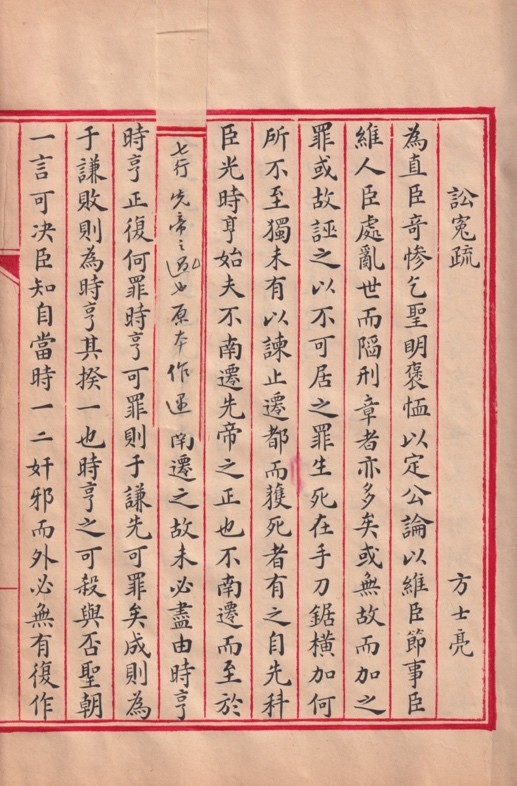 訟寃疏 方士亮
為直臣奇慘乞聖明褒恤以定公論以維臣節事臣
維人臣處亂世而陷刑章者亦多矣或無故而加之
罪或故誣之以不可居之罪生死在手刀鋸橫加何
所不至獨未有以諫止遷都而獲死者有之自先科
臣光時亨始夫不南遷先帝之正也不南遷而至於
七行先帝之過也原本作運
南遷之故未必盡由時亨
時亨正復何罪時亨可罪則于謙先可罪矣成則為
于謙敗則為時亨其揆一也時亨之可殺與否聖朝
一言可决臣知自當時一二奸邪而外必無有復作